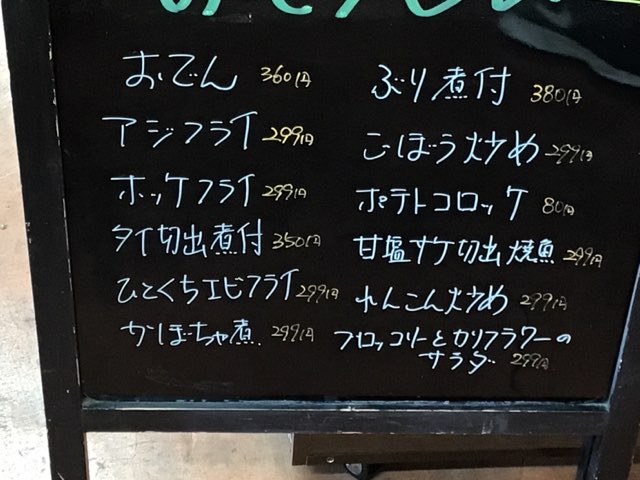 おでん 360円
アジフライ 299円
ホッケフライ 299円
タイ切出煮付 350円
ひとくちエビフライ 299円
かぼちゃ煮 299円
ぶり煮付 380円
ごぼう炒め 299円
ポテトコロッケ 80円
甘塩サケ切出焼魚 299円
れんこん炒め 299円
ブロッコリーとカリフラワーの
サラダ 299円